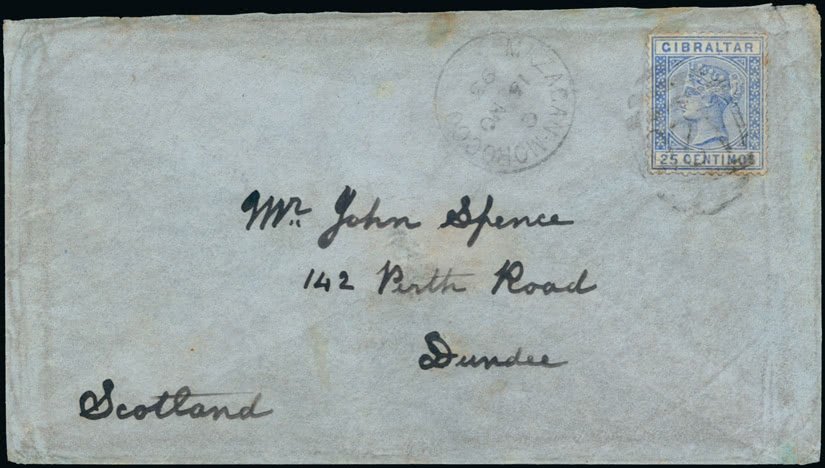 GIBRALTAR
25 CENTIMOS
MAZAGAN-MOROCCO
C
15 AU
93
Mr. John Spence
142 Perth Road
Dundee
Scotland